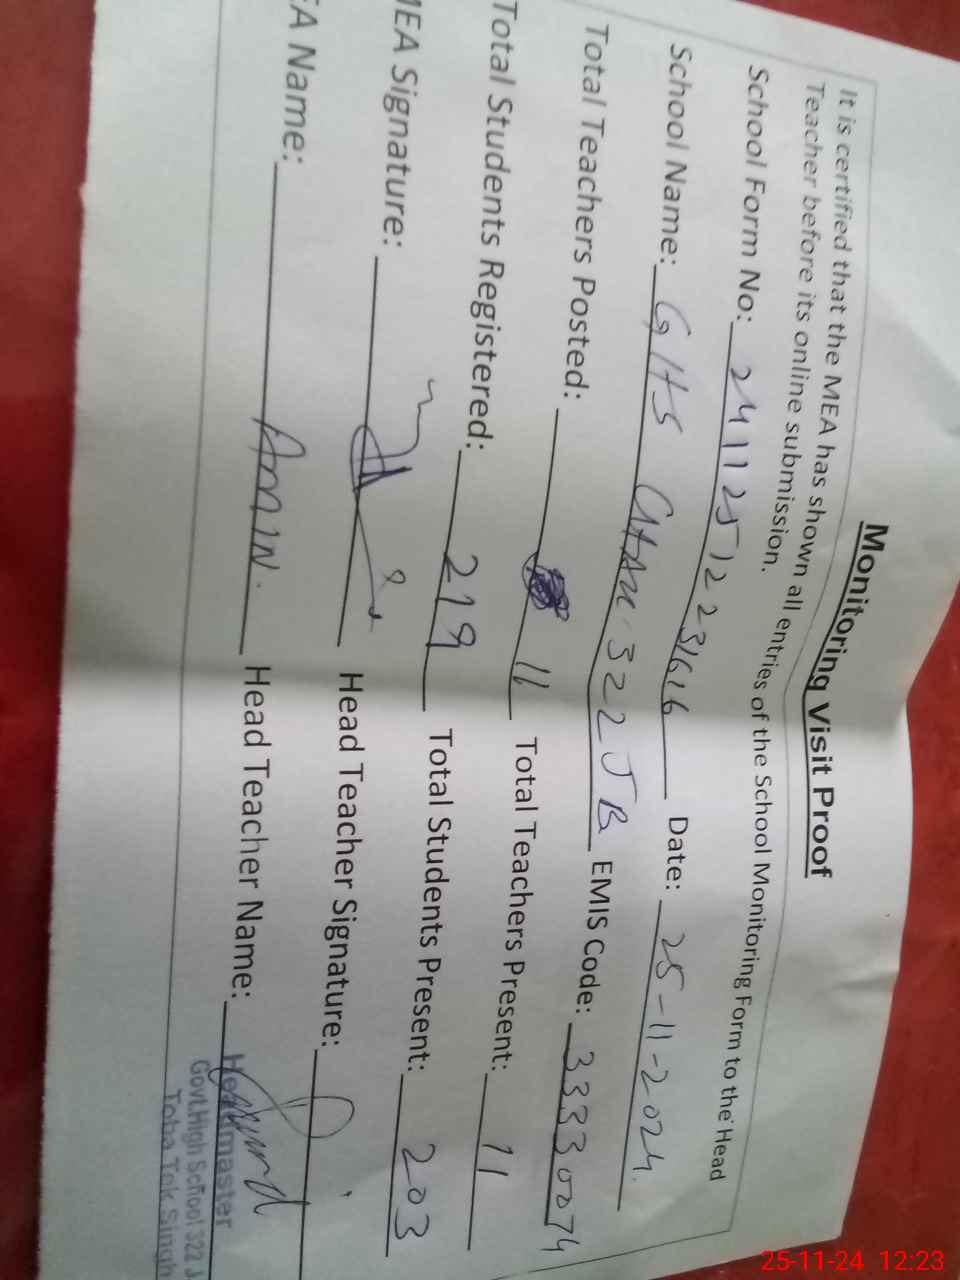 Monitoring Visit Proof
It is certified that the MEA has shown all entries of the School Monitoring Form to the Head
Teacher before its online submission.
School Form No: 2411251223616 Date: 25-11-2024.
School Name: GHS CHAK 322 JB EMIS Code: 33330074
Total Teachers Posted: 11 Total Teachers Present: 11
Total Students Registered: 219 Total Students Present: 203
MEA Signature: Head Teacher Signature:
EA Name: AMIN. Head Teacher Name:
Headmaster
Govt.High School 322 J
Toba Tek Singh
25-11-24 12:23